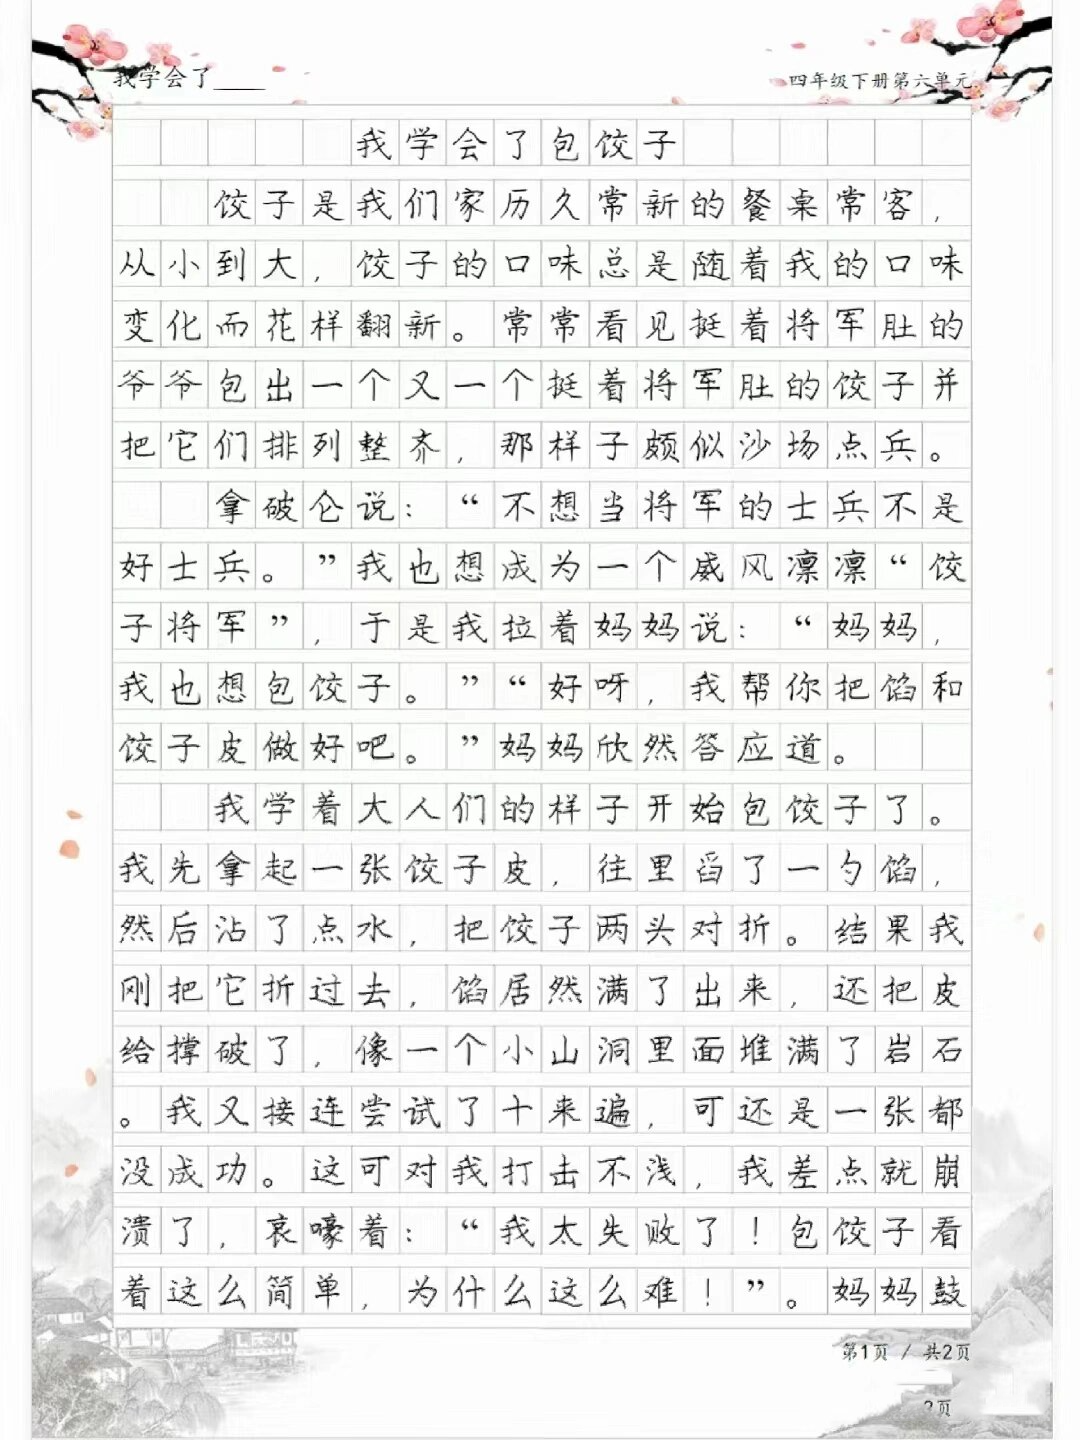 我学会了____
四年级下册第六单元
我学会了包饺子
饺子是我们家历久常新的餐桌常客，
从小到大，饺子的口味总是随着我的口味
变化而花样翻新。常常看见挺着将军肚的
爷爷包出一个又一个挺着将军肚的饺子并
把它们排列整齐，那样子颇似沙场点兵。
拿破仑说：“不想当将军的士兵不是
好士兵。”我也想成为一个威风凛凛“饺
子将军”，于是我拉着妈妈说：“妈妈，
我也想包饺子。”“好呀，我帮你把馅和
饺子皮做好吧。”妈妈欣然答应道。
我学着大人们的样子开始包饺子了。
我先拿起一张饺子皮，往里舀了一勺馅，
然后沾了点水，把饺子两头对折。结果我
刚把它折过去，馅居然满了出来，还把皮
给撑破了，像一个小山洞里面堆满了岩石
。我又接连尝试了十来遍，可还是一张都
没成功。这可对我打击不浅，我差点就崩
溃了，哀嚎着：“我太失败了！包饺子看
着这么简单，为什么这么难！”。妈妈鼓
第1页 / 共2页